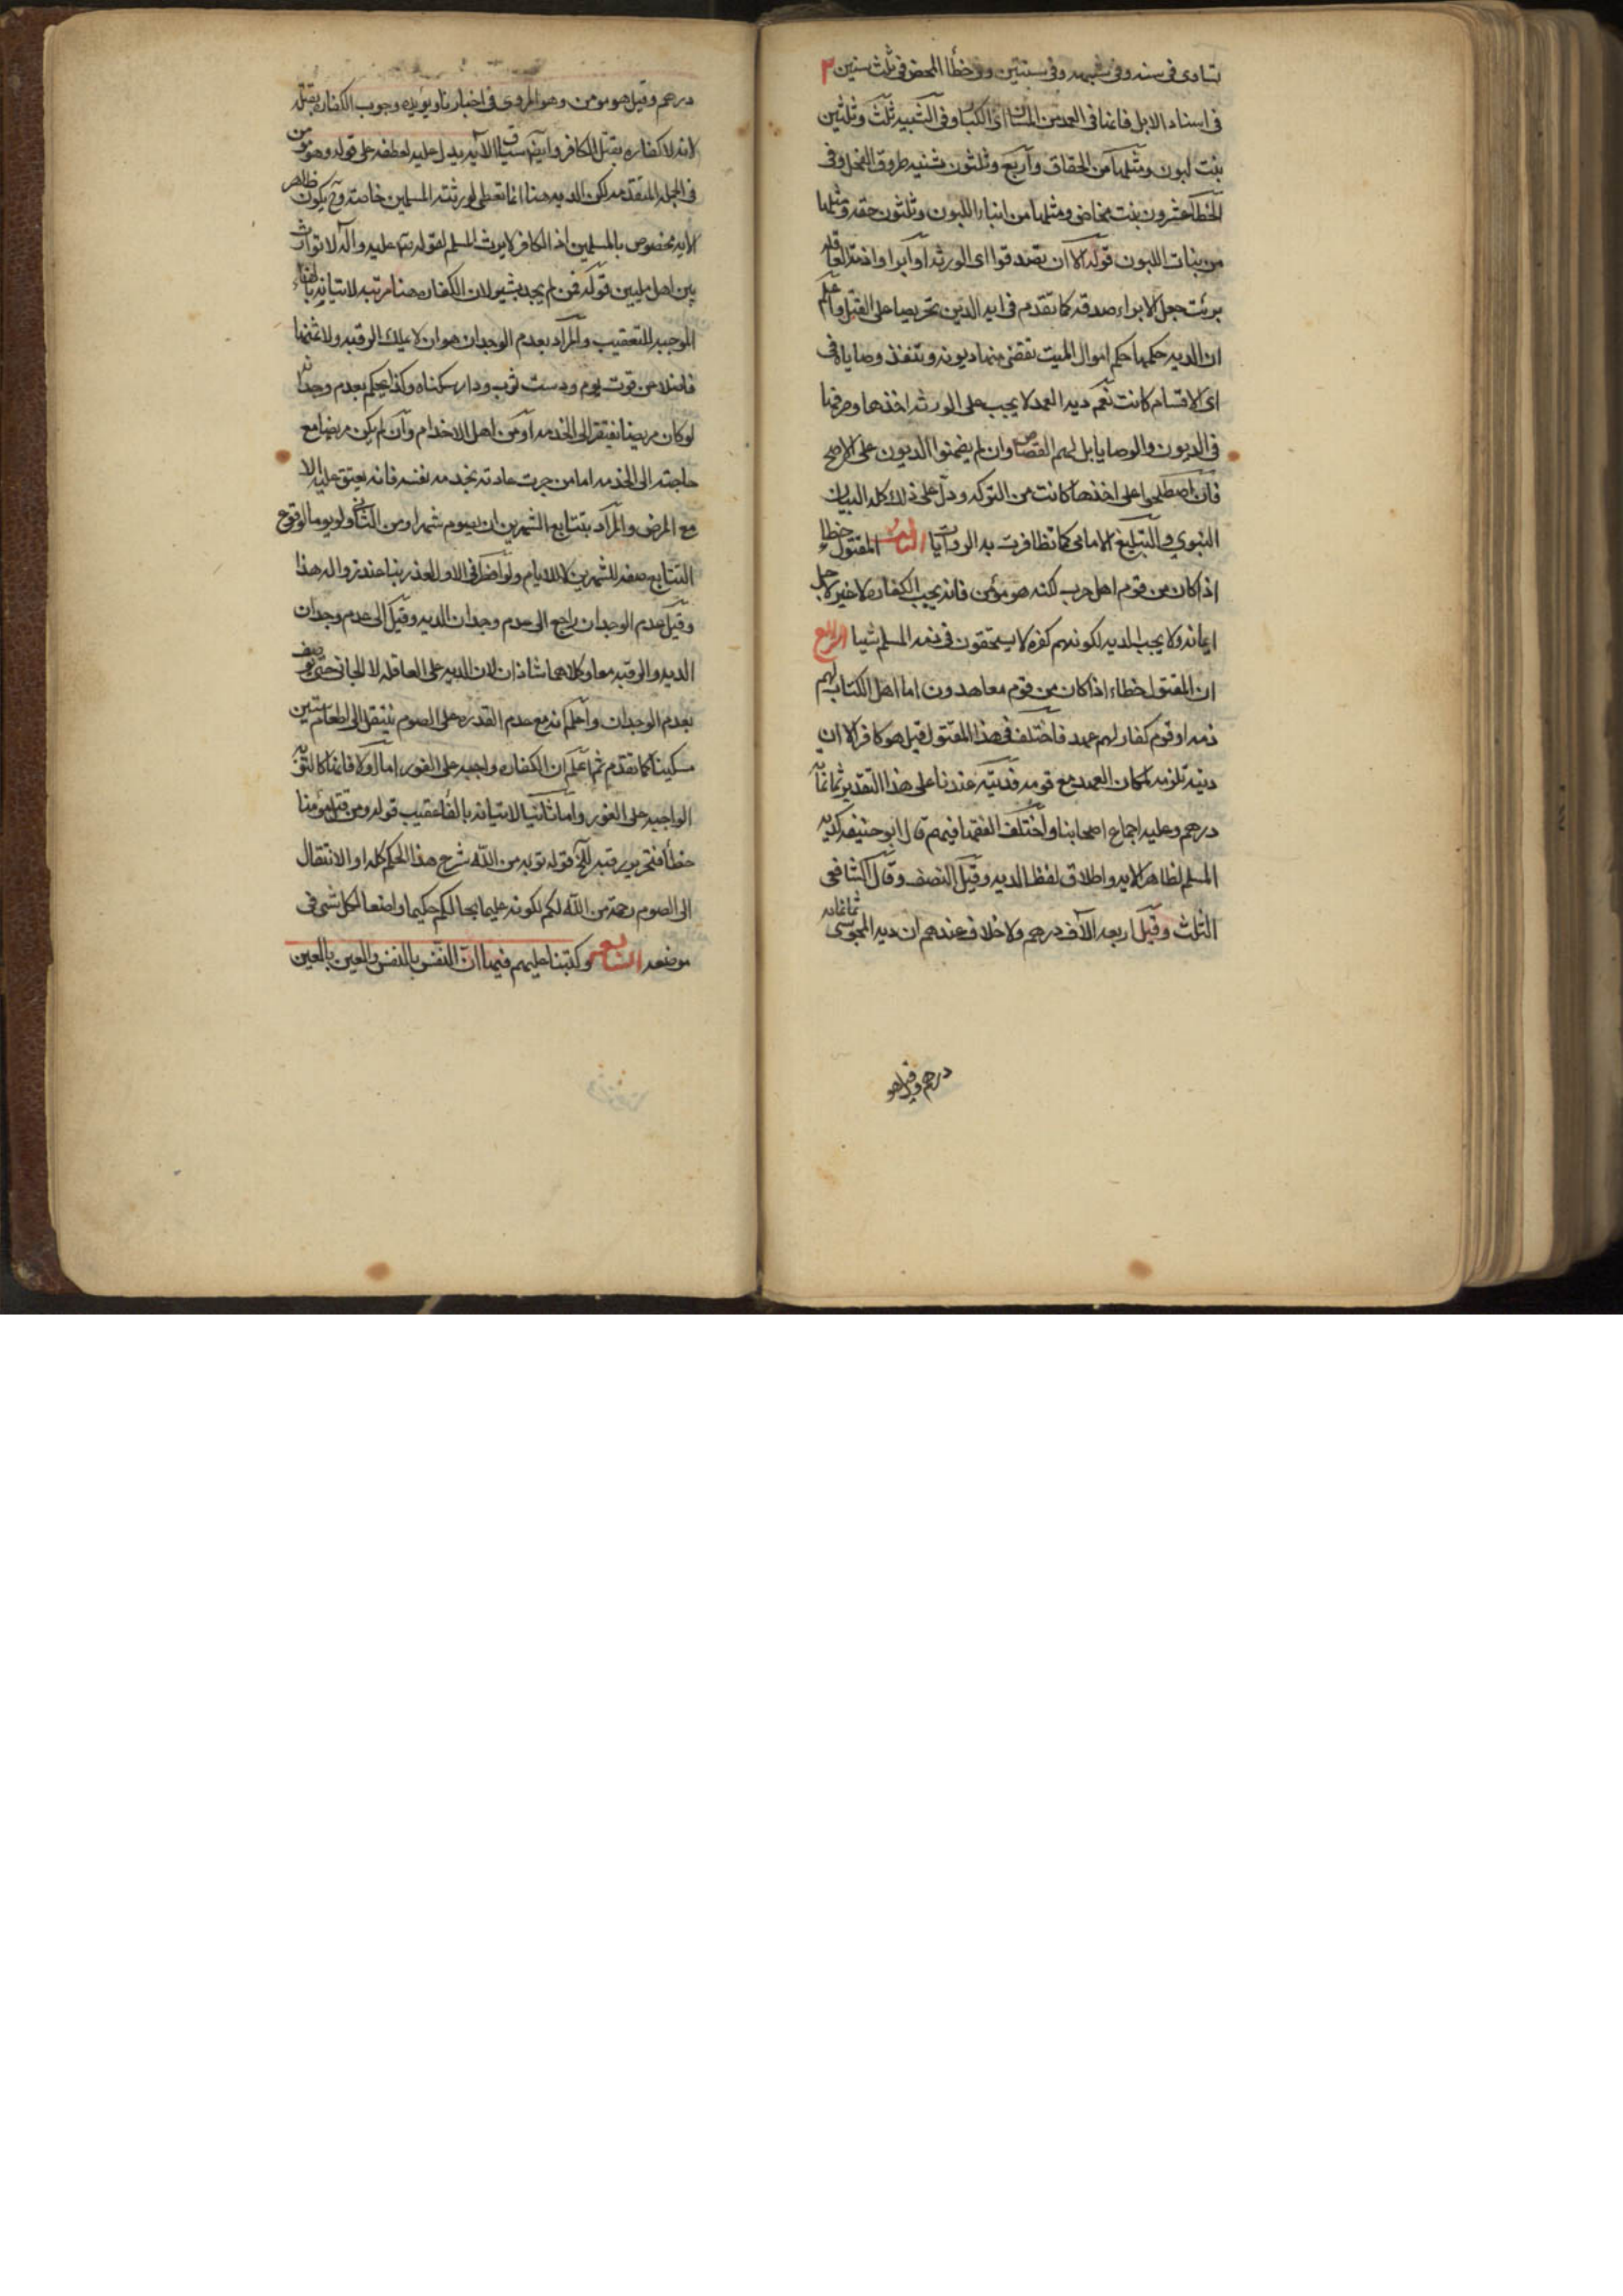 تستادى فى سنه وفى شبهه وفى سنتين وفى خطأ المحض فى ثلث سنين
فى اسناد الابل فانها فى العمد من المسان اى الكبار وفى الشبيه ثلث وثلثين
بنت لبون ومثلها من الحقاق واربع وثلثون ثنيه طروقة الفحل وفى
الخطا عشرون بنت مخاض ومثلها من ابناء اللبون وثلثون حقه ومثلها
من بنات اللبون قوله الا ان يصدقوا اى الورثه اى ابراوا ذمة العاقله
برئت جعل الابراء صدقه كما تقدم فى ايه الدين تحريصا على القبل واعلم
ان الديه حكمها حكم اموال الميت تقضى منها ديونه وتنفذ وصاياه فى
اى الاقسام كانت نعم ديه العمد لا يجب على الورثه اخذها وصرفها
فى الديون والوصايا بل لهم القصاص وان لم يضمنوا الديون على الاصح
فان اصطلحوا على اخذها كانت من التركه ودل على ذلك كله البيان
النبوى والتبليغ الامامى كما تظافرت به الروايات الثالث المقتول خطا
اذا كان من قوم اهل حرب لكنه هو مؤمن فانه يجب الكفاره لا غير لاجل
ايمانه ولا يجب الديه لكونهم كفره لا يستحقون فى ذمه المسلم شيا الرابع
ان المقتول خطاء اذا كان من قوم معاهدون اما اهل الكتاب لهم
ذمه او قوم كفار لهم عهد فاختلف فى هذا المقتول قيل هو كافر الا ان
ديته تلزمه لمكان العهد مع قومه فديته عندنا على هذا التقدير ثمانمائه
درهم وعليه اجماع اصحابنا واختلف الفقها فيهم قال ابو حنيفه كديه
المسلم لظاهر الايه واطلاق لفظ الديه وقيل النصف وقال الشافعى
الثلث وقيل اربعه الآف درهم ولا خلاف عندهم ان ديه المجوسى ثمانمائه
درهم وقيل هو
درهم وقيل هو مومن وهو المروى فى اخبارنا ويؤيده وجوب الكفاره بقتله
لانه لا كفاره بقتل الكافر وايضا سياق الآيه يدل عليه لعطفه على قوله وهو مومن
فى الجمله المتقدمه لكن الديه هنا انما تعطى لورثته المسلمين خاصه وح يكون ظاهر
الآيه مخصوص بالمسلمين اذ الكافر لا يرث المسلم لقوله عليه وآله لا توارث
بين اهل ملتين قوله فمن لم يجد يشير لان الكفاره هنا مرتبه لاتيانه بالفاء
الموجبه للتعقيب والمراد بعدم الوجدان هو ان لا يملك الرقبه ولا ثمنها
فاضلا من قوت يوم ودست ثوب ودار سكناه وكذا يحكم بعدم وجدانه
لو كان مريضا يفتقر الى الخدمه او من اهل الاخدام وان لم يكن مريضا مع
حاجته الى الخدمه اما من جرت عادته بخدمه نفسه فانه يعتق عليه الا
مع المرض والمراد بتتابع الشهرين ان يصوم شهرا ومن الثانى ولو يوما لوقوع
التتابع صفه للشهرين لا للايام ولو افطر فى الاول لعذر بنا عند زواله هذا
وقيل عدم الوجدان راجع الى عدم وجدان الديه وقيل الى عدم وجدان
الديه والرقبه معا وكلاهما شاذان لان الديه على العاقله لا الجانى حتى يوصف
بعدم الوجدان واعلم انه مع عدم القدره على الصوم ينتقل الى اطعام ستين
مسكينا كما تقدم ثم اعلم ان الكفاره واجبه على الفور اما اولا فانها كالتوبه
الواجبه على الفور واما ثانيا لاتيانه بالفا عقيب قوله ومن قتل مؤمنا
خطأ فتحرير رقبه الخ قوله توبه من الله شرع هذا الحكم كله او الانتقال
الى الصوم رحمة من الله لكم لكونه عليما بحالكم حكيما واضعا لكل شى فى
موضعه السابعه وكتبنا عليهم فيها ان النفس بالنفس والعين بالعين